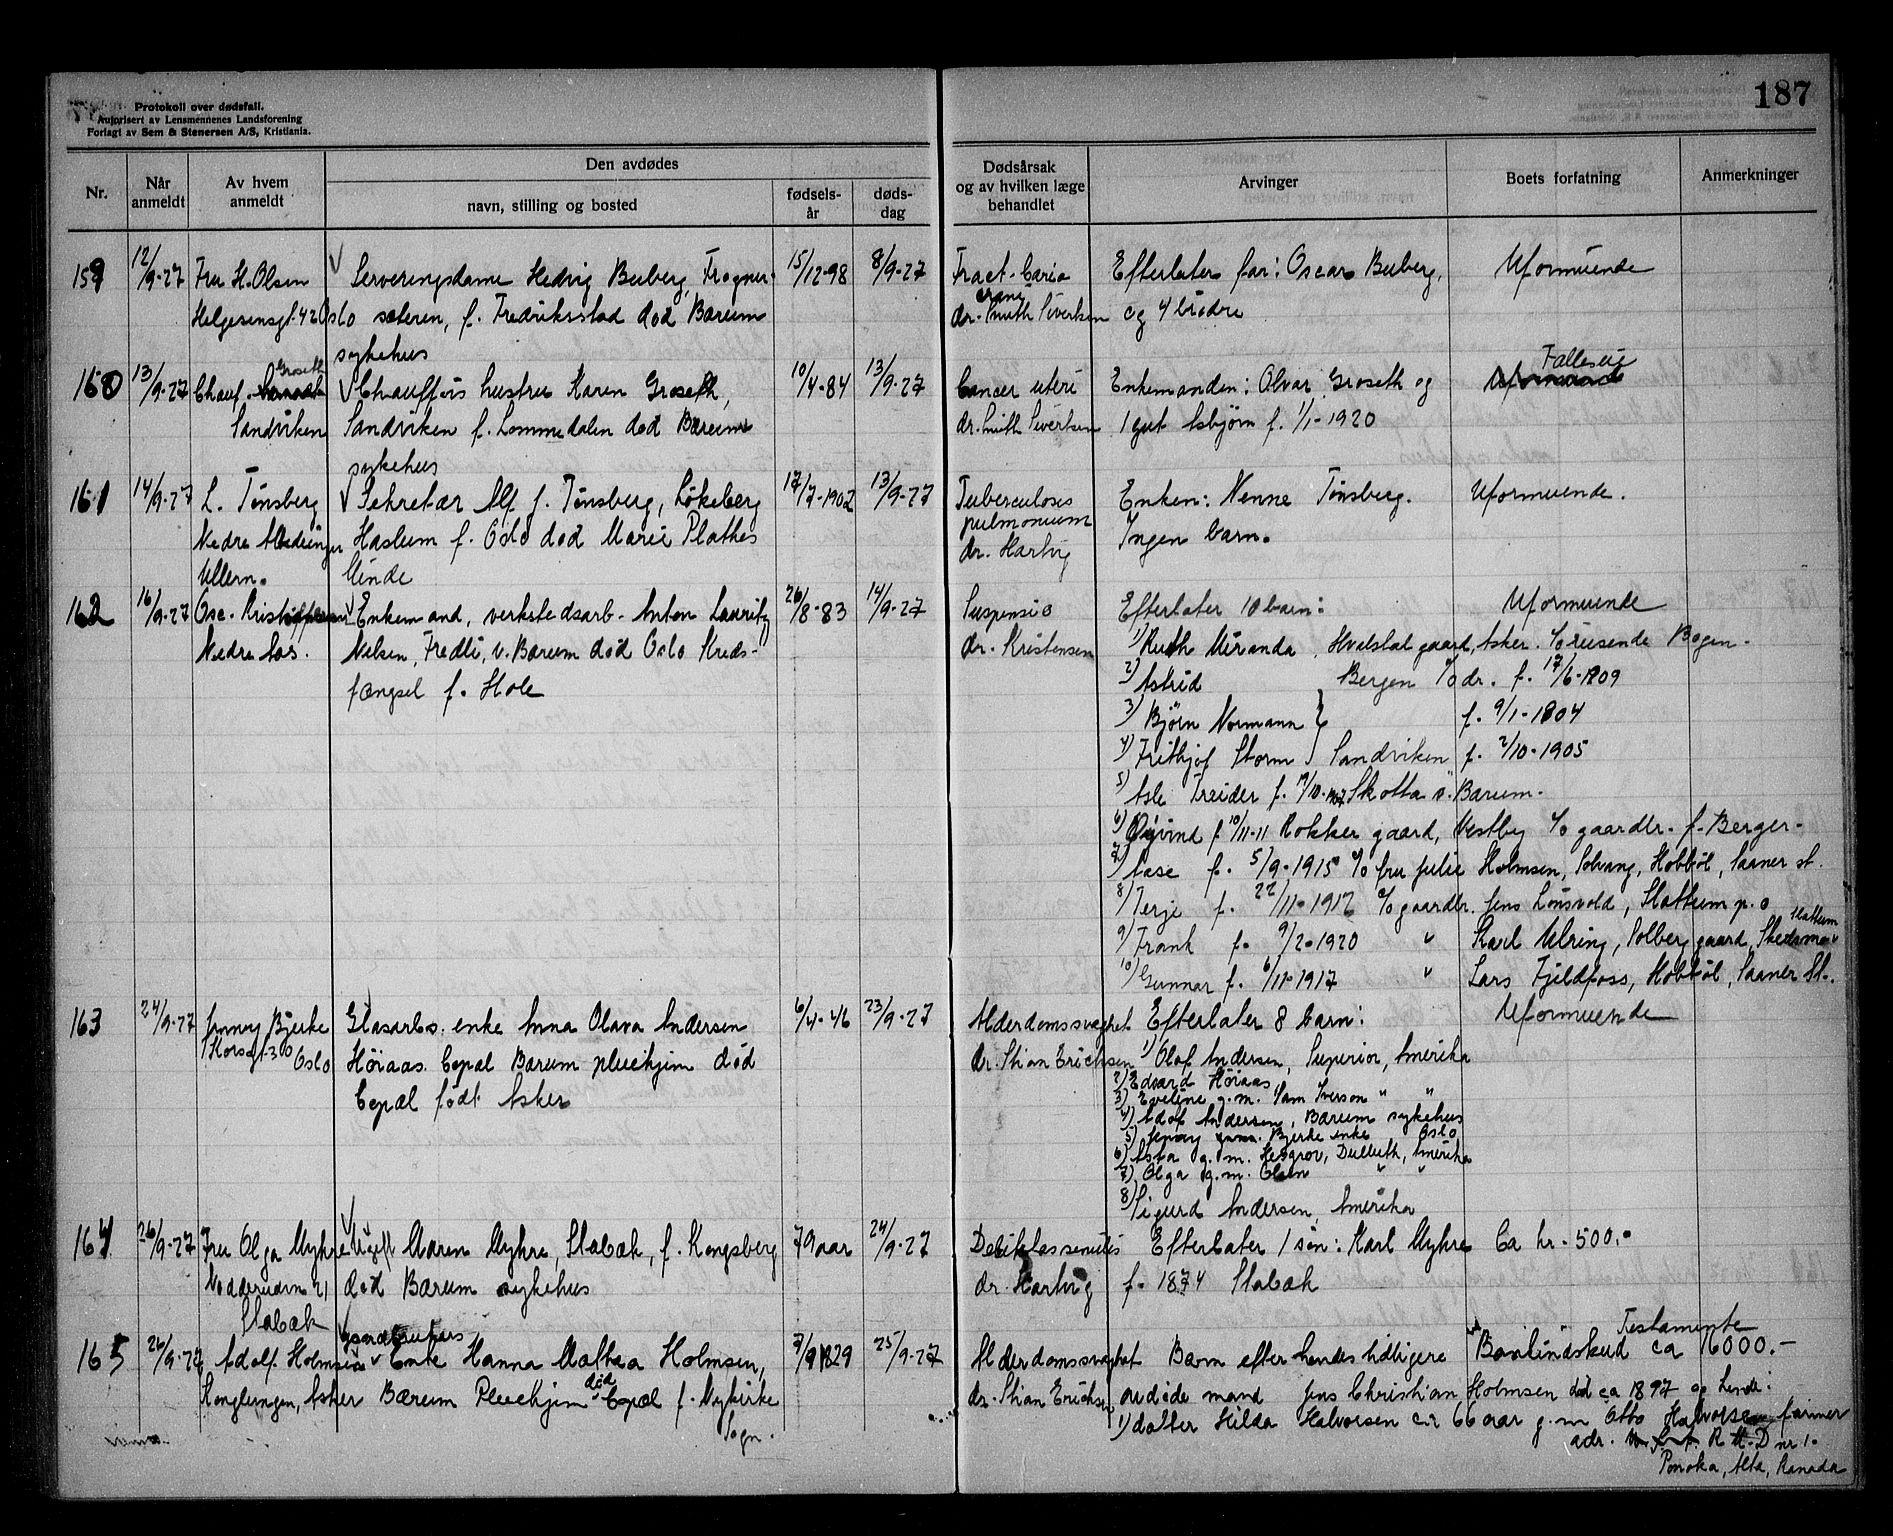 Protokoll over dødsfall.
Autorisert av Lensmennenes Landsforening
Forlagt av Sem & Stenersen A/S, Kristiania.
187
Nr.
Når anmeldt
Av hvem anmeldt
Den avdødes
navn, stilling og bosted
fødsels-år
døds-dag
Dødsårsak og av hvilken læge behandlet
Arvinger
Boets forfatning
Anmerkninger
159 12/9-27 Fru H. Olsen Serveringsdame Hedvig Buberg, Frogner- 15/12-98 8/9-27 Fract. Efterlater far: Oscar Buberg, Uformuende
Helgesensgt. 42 Oslo sæteren, f. Fredriksstad død Bærum dr. Smith Sivertsen og 4 brødre
sykehus
160 13/9-27 Chauf. Groseth Chaufførs hustru Karen Groseth, 10/4-84 13/9-27 Cancer uteri Enkemanden: Olvar Groseth og Fælleseie
Sandviken Sandviken f. Lommedalen død Bærum dr. Smith Sivertsen 1 gut Asbjørn f. 1/1-1920
sykehus
161 14/9-27 L. Tønsberg Sekretær Alf J. Tønsberg, Løkeberg 17/7-1902 13/9-27 Tuberculosis Enken: Nenne Tønsberg. Uformuende.
Nedre Haslum f. Oslo død Marie Plathes pulmonum Ingen barn.
Ullern. Minde dr. Hartvig
162 16/9-27 Osc. Kristoffersen Enkemand, verkstedsarb. Anton Lauritz 26/8-83 14/9-27 Suspensio Efterlater 10 barn: Uformuende
Nedre Aas. Nilsen, Fredli, v. Bærum død Oslo Kreds- dr. Kristensen 1) Ruth Miranda, Hvalstad gaard, Asker. c/o reisende Bogen.
fængsel f. Hole 2) Astrid Bergen c/o dr. f. 17/6-1909
3) Bjørn Normann } f. 9/1-1904
4) Frithjof Storm } Sandviken f. 2/10-1905
5) Asle Treider f. /10-1907 Skotta v. Bærum.
6) Øivind f. 10/11-11 Rokker gaard, Vestby c/o gaardbr. f. Berger.
7) Aase f. 5/9-1915 c/o fru Julie Holmsen, Solvang, Hobbøl, Saaner st.
8) Terje f. 22/11-1912 c/o gaardbr. Jens Lønsvold, Slattum p.o
9) Frank f. 9/2-1920 " Karl Ulring, Solberg gaard, Skedsmo Slattum
10) Gunnar f. 6/11-1917 " Lars Fjeldfoss, Hobbøl, Saaner St.
163 24/9-27 Jenny Bjerke Glasarb. enke Anna Olava Andersen 6/4-46 23/9-27 Alderdomssvaghet Efterlater 8 barn: Uformuende
Korsgt. 30 Oslo Høiaas. Bærum pleiehjem død dr. Stian Erichsen 1) Olaf Andersen, Superior, Amerika
født Asker 2) Edvard Høiaas
3) Eveline g.m. Sam Iverson " "
4) Adolf Andersen, Bærum sykehus
5) Jenny Bjerke enke Oslo
6) Asta g.m. Hesgrov, Dulluth, Amerika
7) Olga g.m. Olsen " "
8) Sigurd Andersen, Amerika
164 26/9-27 Fru Olga Myhre Ugift Maren Myhre, Stabæk, f. Kongsberg 79 aar 24/9-27 Efterlater 1 søn: Karl Myhre Ca kr. 500.-
21 død Bærum sykehus dr. Hartvig f. 1874 Stabæk
Stabæk
165 26/9-27 Adolf Holmsen Enke Hanna Mathea Holmsen, 7/9 1829 25/9-27 Alderdomssvaghet Barn efter hendes tidligere Testamente ca 16000.-
Konglungen, Asker Bærum Pleiehjem død f. Nykirke dr. Stian Erichsen avdøde mand Jens Christian Holmsen død ca 1897 og hende:
Sogn. 1) datter Hilda Halvorsen ca 66 aar g.m Otto Halvorsen farmer
adr. R R. D nr 1.
Ponoka, Alta, Kanada